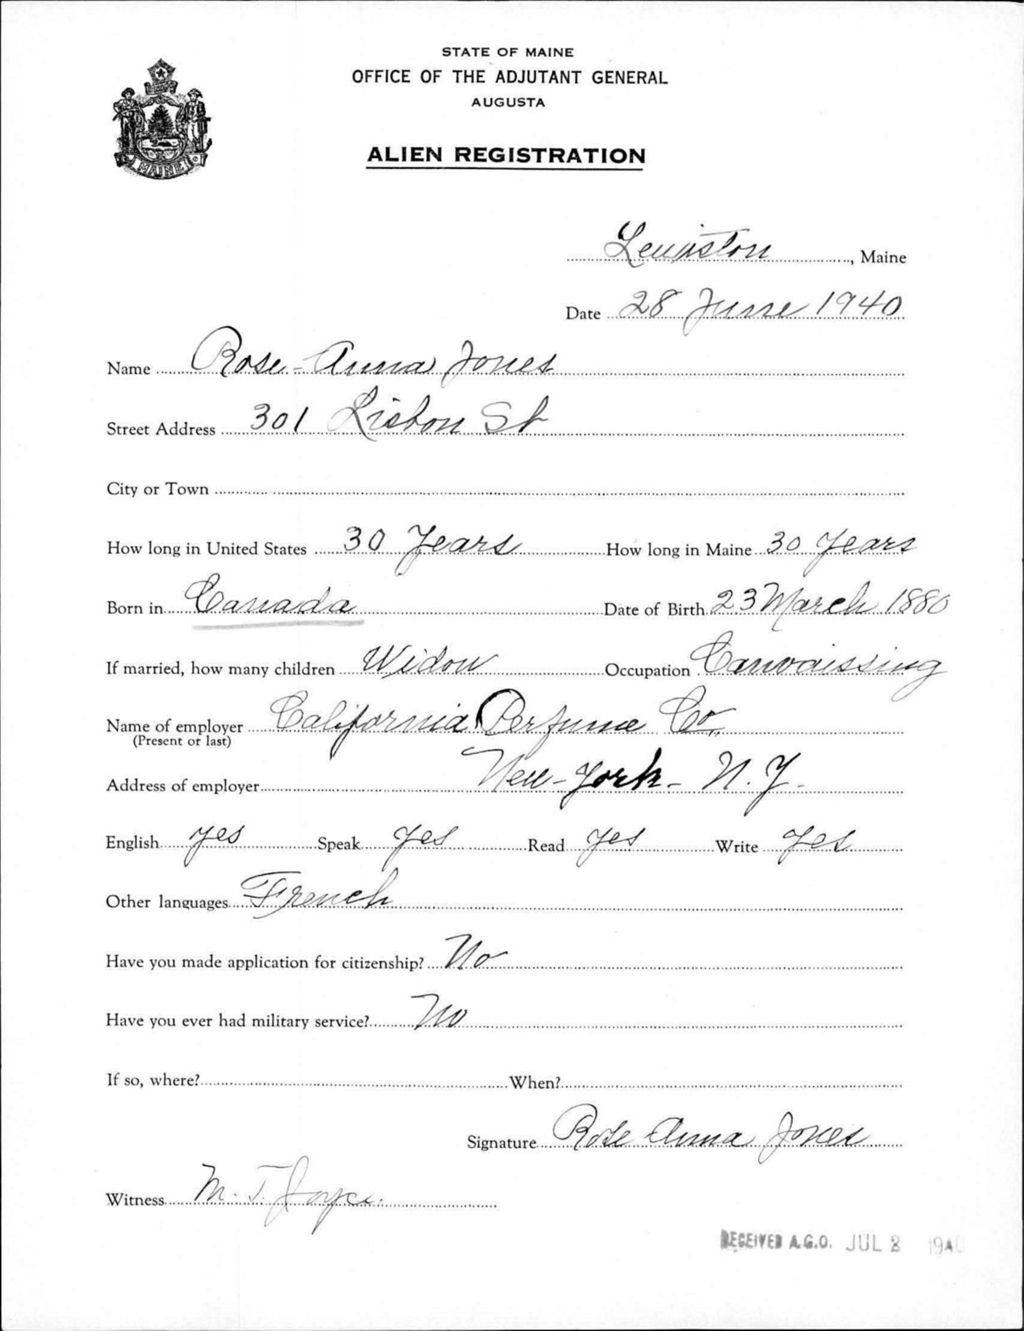 STATE OF MAINE
OFFICE OF THE ADJUTANT GENERAL
AUGUSTA
ALIEN REGISTRATION
MAINE
Lewiston, Maine
Date 28 June 1940
Name Rose-Anna Jones
Street Address 301 Lisbon St
City or Town
How long in United States 30 Years How long in Maine 30 Years
Born in Canada Date of Birth 23 March 1880
If married, how many children Widow Occupation Canvaissing
Name of employer California Perfume Co.
(Present or last)
Address of employer New-York- N.Y.
English yes Speak Yes Read Yes Write Yes
Other languages French
Have you made application for citizenship? No
Have you ever had military service? No
If so, where? When?
Signature Rose Anna Jones
Witness M. T. Joyce
RECEIVED A.G.O. JUL 2 1940